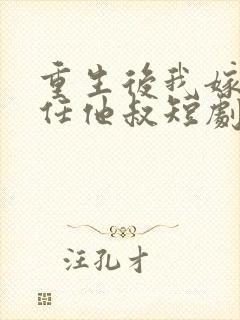 重生後我嫁
任他叔短劇
汪孔才